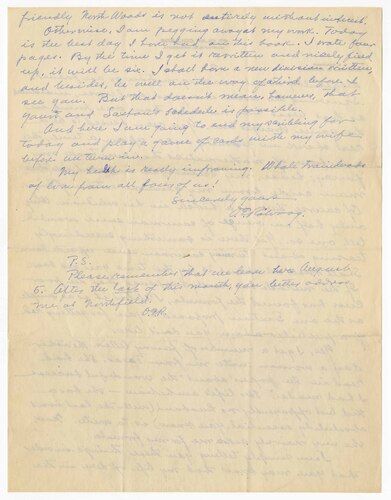 friendly North Woods is not entirely without interest.
Otherwise, I am pegging away at my work. Today
is the best day I have had on the book. I wrote four
pages. By the time I get it rewritten and nicely fixed
up, it will be six. I shall have a new division written,
and besides, be well on the way of a third before I
see you. But that doesn't mean, however, that
yours and Saxton's schedule is possible.
And here I am going to end my scribbling for
today and play a game of cards with my wife
before we turn in.
My health is really improving. Whole trainloads
of love from all four of us!
Sincerely yours
O. E. Rölvaag.
P.S.
Please remember that we leave here August
5. After the last of this month, your letters address
me at Northfield.
O.E.R.